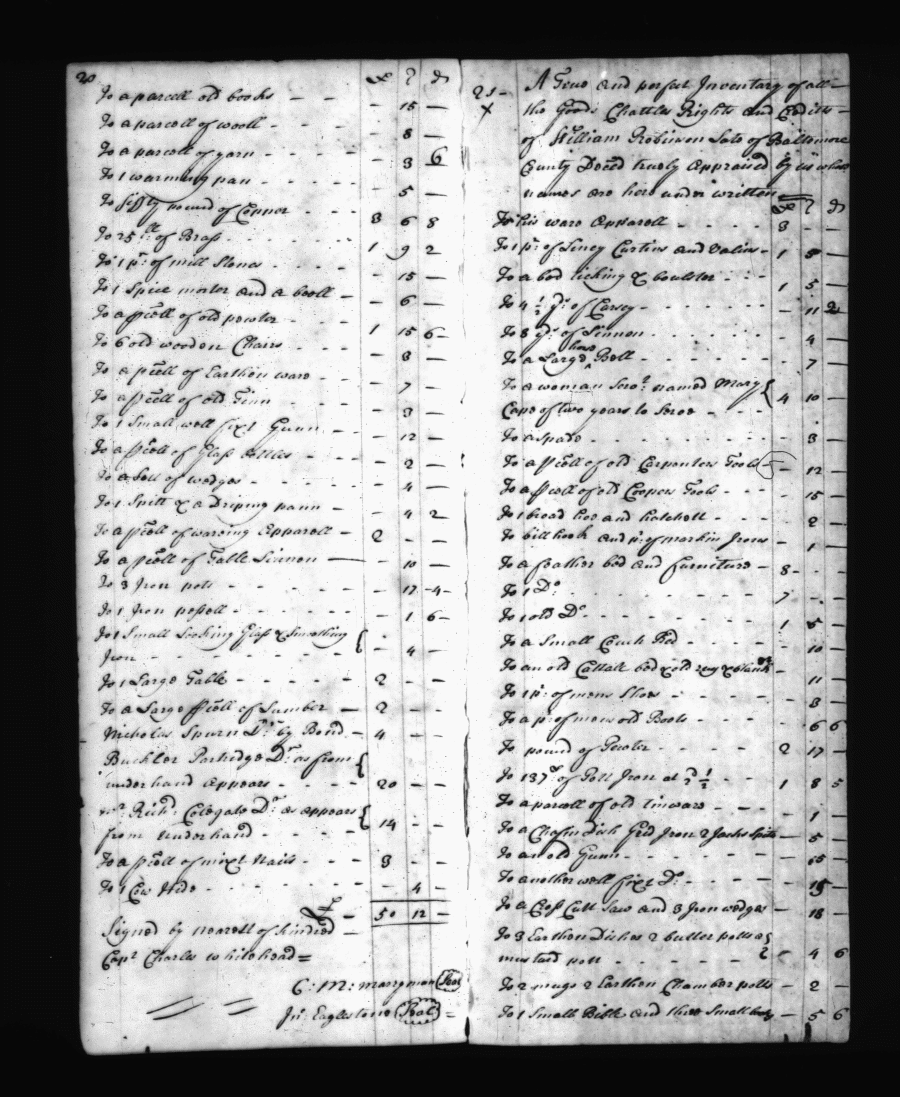 20 £ s d
To a parcell old books - - - 15 -
To a parcell of wooll - - - 8 -
To a parcell of yarn - - - 3 6
To 1 warming pan - - - 5 -
To fifty pound of Copper - - 3 6 8
To 25 lb of Brass - - - 1 9 2
To 1 pr: of mill Stones - - - 15 -
To 1 Spice morter and a booll - - 6 -
To a pcell of old pewter - - 1 15 6
To 6 old wooden Chairs - - - 8 -
To a pcell of Earthen ware - - 7 -
To a pcell of old Tinn - - - 3 -
To 1 Small well fixt Gunn - - 12 -
To a pcell of Glass Bottles - - 2 -
To a Sett of wedges - - - 4 -
To 1 Spitt & a Driping pann - - 4 2
To a pcell of wareing Apparell - 2 - -
To a pcell of Table Linnen - - 10 -
To 3 Iron pots - - - 17 4
To 1 Iron pessell - - - 1 6
To 1 Small Looking Glass & Smoothing
Iron - - - 4 -
To 1 Large Table - - - 2 - -
To a Large pcell of Lumber - 2 - -
Nicholas Spurn Dr. by Bond - 4 - -
Buckler Partridge Dr. as from
under hand appears - - 20 - -
Mr. Richd. Colegate Dr. as appears
from under hand - - 14 - -
To a pcell of mixt Nails - - 3 - -
To 1 Cow Hide - - - 4 -
£ 50 12 -
Signed by nearest of kindred
Capt. Charles Whitehead =
C: M: Marryman Seal
Jn: Eaglestone Seal
21 - A True and perfect Inventary of all
x the Goods Chattles Rights and Credits
of William Robinson Late of Baltimore
County Deced truely Appraised by us whose
names are here under written
£ s d
To his ware Apparell - - 3 - -
To 1 pr: of Curtins and Valins - 1 5 -
To a bed ticking & boulster - - 1 5 -
To 4 1/2 yd: of Carsey - - - 11 2
To 3 yd: of Linnen - - - 4 -
To a Large Bell - - - 7 -
To a woman Servt. named Mary
Cane of two years to Serve - - 4 10 -
To a spade - - - 3 -
To a pcell of old Carpenters Tools - 12 -
To a pcell of old Coopers Tools - 15 -
To 1 broad hoe and hatchett - - 2 -
To bill hook and pr: of markin Irons - 1 -
To a feather bed and furniture - 8 - -
To 1 Do - - - 7 - -
To 1 old Do - - - 1 5 -
To a Small Couch Bed - - - 10 -
To an old Cattail bed & old rug & blankt - 11 -
To 1 pr: of mens Shoes - - - 3 -
To a pr of mens old Boots - - 6 6
To pound of Pewter - - - 2 17 -
To 137 lb of Pott Iron at 2d 1/2 - 1 8 5
To a parcell of old tinware - - 1 -
To a Chafin Dish Grid Iron 2 Jacks Spitts - 5 -
To an old Gunn - - - 15 -
To another well fixt Do - - 15 -
To a Cross Cutt Saw and 3 Iron wedges - 18 -
To 3 Earthen Dishes 2 butter potts a
mustard pott - - - 4 6
To 2 mugs 2 Earthen Chamber potts - 2 -
To 1 Small Bible and three Small books - 5 6